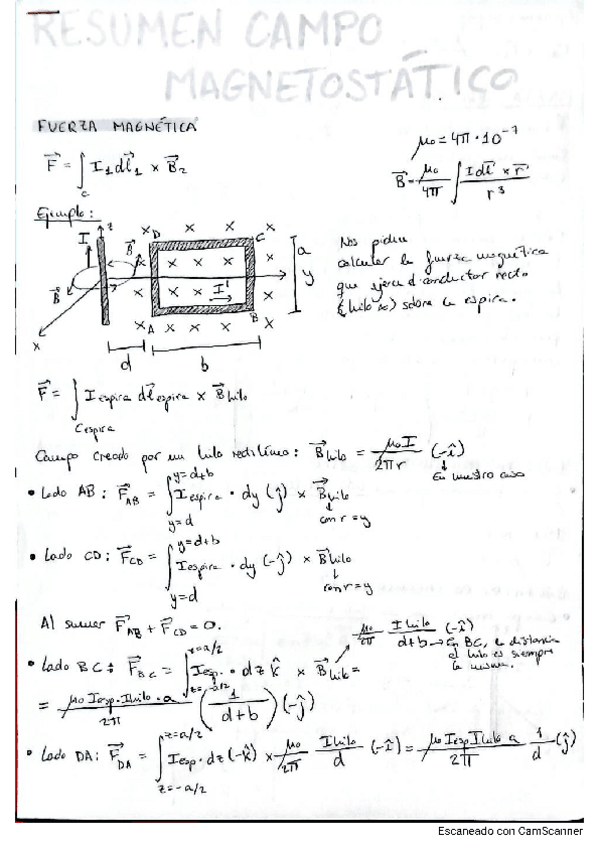 RESUMEN CAMPO
MAGNETOSTÁTICO
FUERZA MAGNÉTICA
F⃗ = ∫_C I₁dl⃗₁ × B⃗₂
μ₀ = 4π·10⁻⁷
B⃗ = μ₀/4π ∫ I dl⃗ × r⃗ / r³
Ejemplo:
I z B⃗ B⃗ x y D C A B I' a d b
Nos piden
calcular la fuerza magnética
que ejerce el conductor recto
(hilo ∞) sobre la espira.
F⃗ = ∫_Cespira I espira dl⃗ espira × B⃗ hilo
Campo creado por un hilo rectilíneo: B⃗hilo = μ₀I/2πr (-î)
En nuestro caso
• Lado AB: F⃗_AB = ∫_{y=d}^{y=d+b} I espira · dy (ĵ) × B⃗hilo
con r=y
• Lado CD: F⃗_CD = ∫_{y=d}^{y=d+b} I espira · dy (-ĵ) × B⃗hilo
con r=y
Al sumar F⃗_AB + F⃗_CD = 0.
μ₀/2π I hilo/d+b (-î)
→ En BC, la distancia
al hilo es siempre
la misma.
• Lado BC: F⃗_BC = ∫_{z=-a/2}^{z=a/2} I esp. · dz k̂ × B⃗hilo =
= μ₀ Iesp. Ihilo · a/2π (1/d+b) (-ĵ)
• Lado DA: F⃗_DA = ∫_{z=-a/2}^{z=a/2} Iesp · dz (-k̂) × μ₀/2π I hilo/d (-î) = μ₀ Iesp Ihilo a/2π 1/d (ĵ)
Escaneado con CamScanner